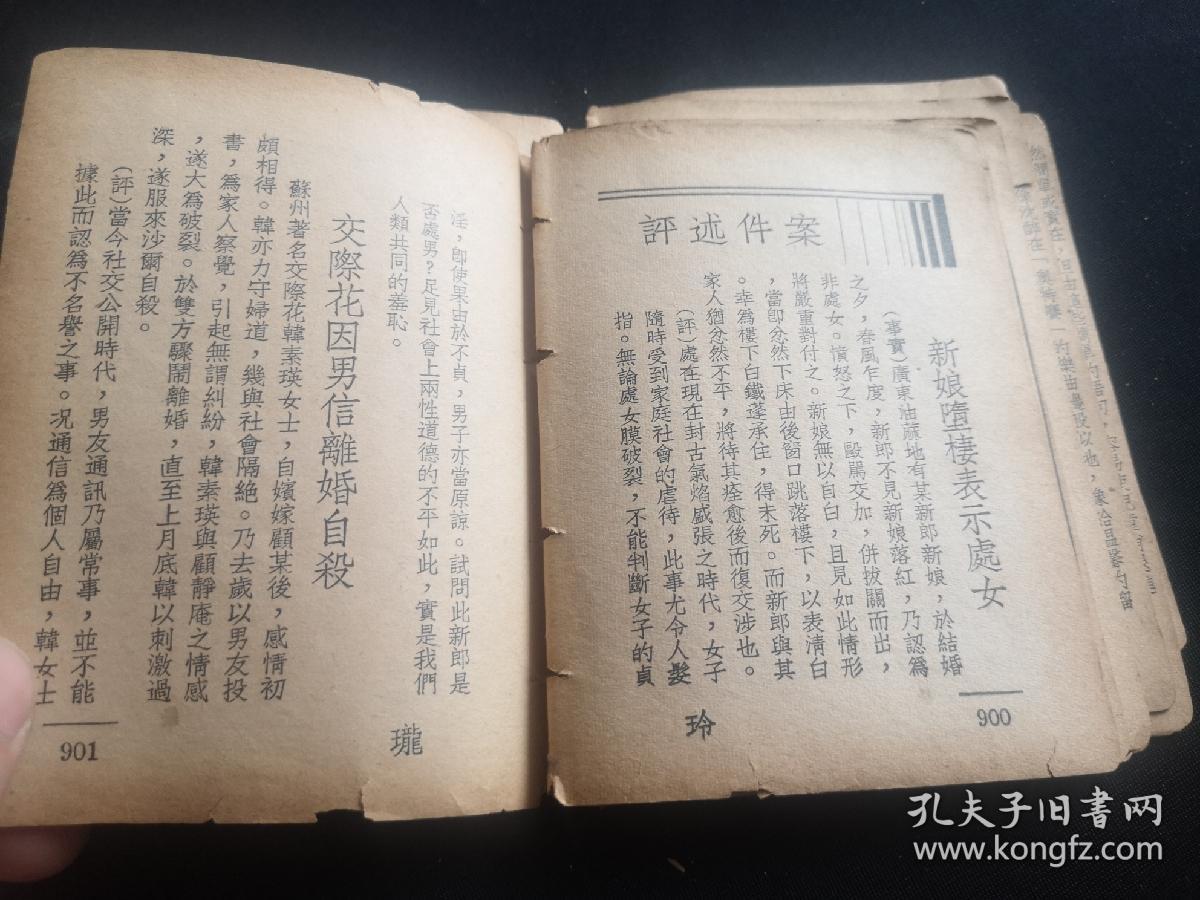 案件述評
新娘墮樓表示處女
(事實)廣東油蔴地有某新郎新娘,於結婚
之夕,春風乍度,新郎不見新娘落紅,乃認爲
非處女。憤怒之下,毆罵交加,併拔關而出,
將嚴重對付之。新娘無以自白,且見如此情形
,當卽忿然下床由後窗口跳落樓下,以表清白
。幸爲樓下白鐵蓬承住,得未死。而新郎與其
家人猶忿然不平,將待其痊愈後而復交涉也。
(評)處在現在封古氣焰盛張之時代,女子
隨時受到家庭社會的虐待,此事尤令人髮
指。無論處女膜破裂,不能判斷女子的貞
900
玲
淫,卽使果由於不貞,男子亦當原諒。試問此新郎是
否處男?足見社會上兩性道德的不平如此,實是我們
人類共同的羞恥。
交際花因男信離婚自殺
蘇州著名交際花韓素瑛女士,自嬪嫁顧某後,感情初
頗相得。韓亦力守婦道,幾與社會隔絶。乃去歲以男友投
書,爲家人察覺,引起無謂糾紛,韓素瑛與顧靜庵之情感
,遂大爲破裂。於雙方驟鬧離婚,直至上月底韓以刺激過
深,遂服來沙爾自殺。
(評)當今社交公開時代,男友通訊乃屬常事,並不能
據此而認爲不名譽之事。況通信爲個人自由,韓女士
瓏
901
孔夫子旧书网
www.kongfz.com